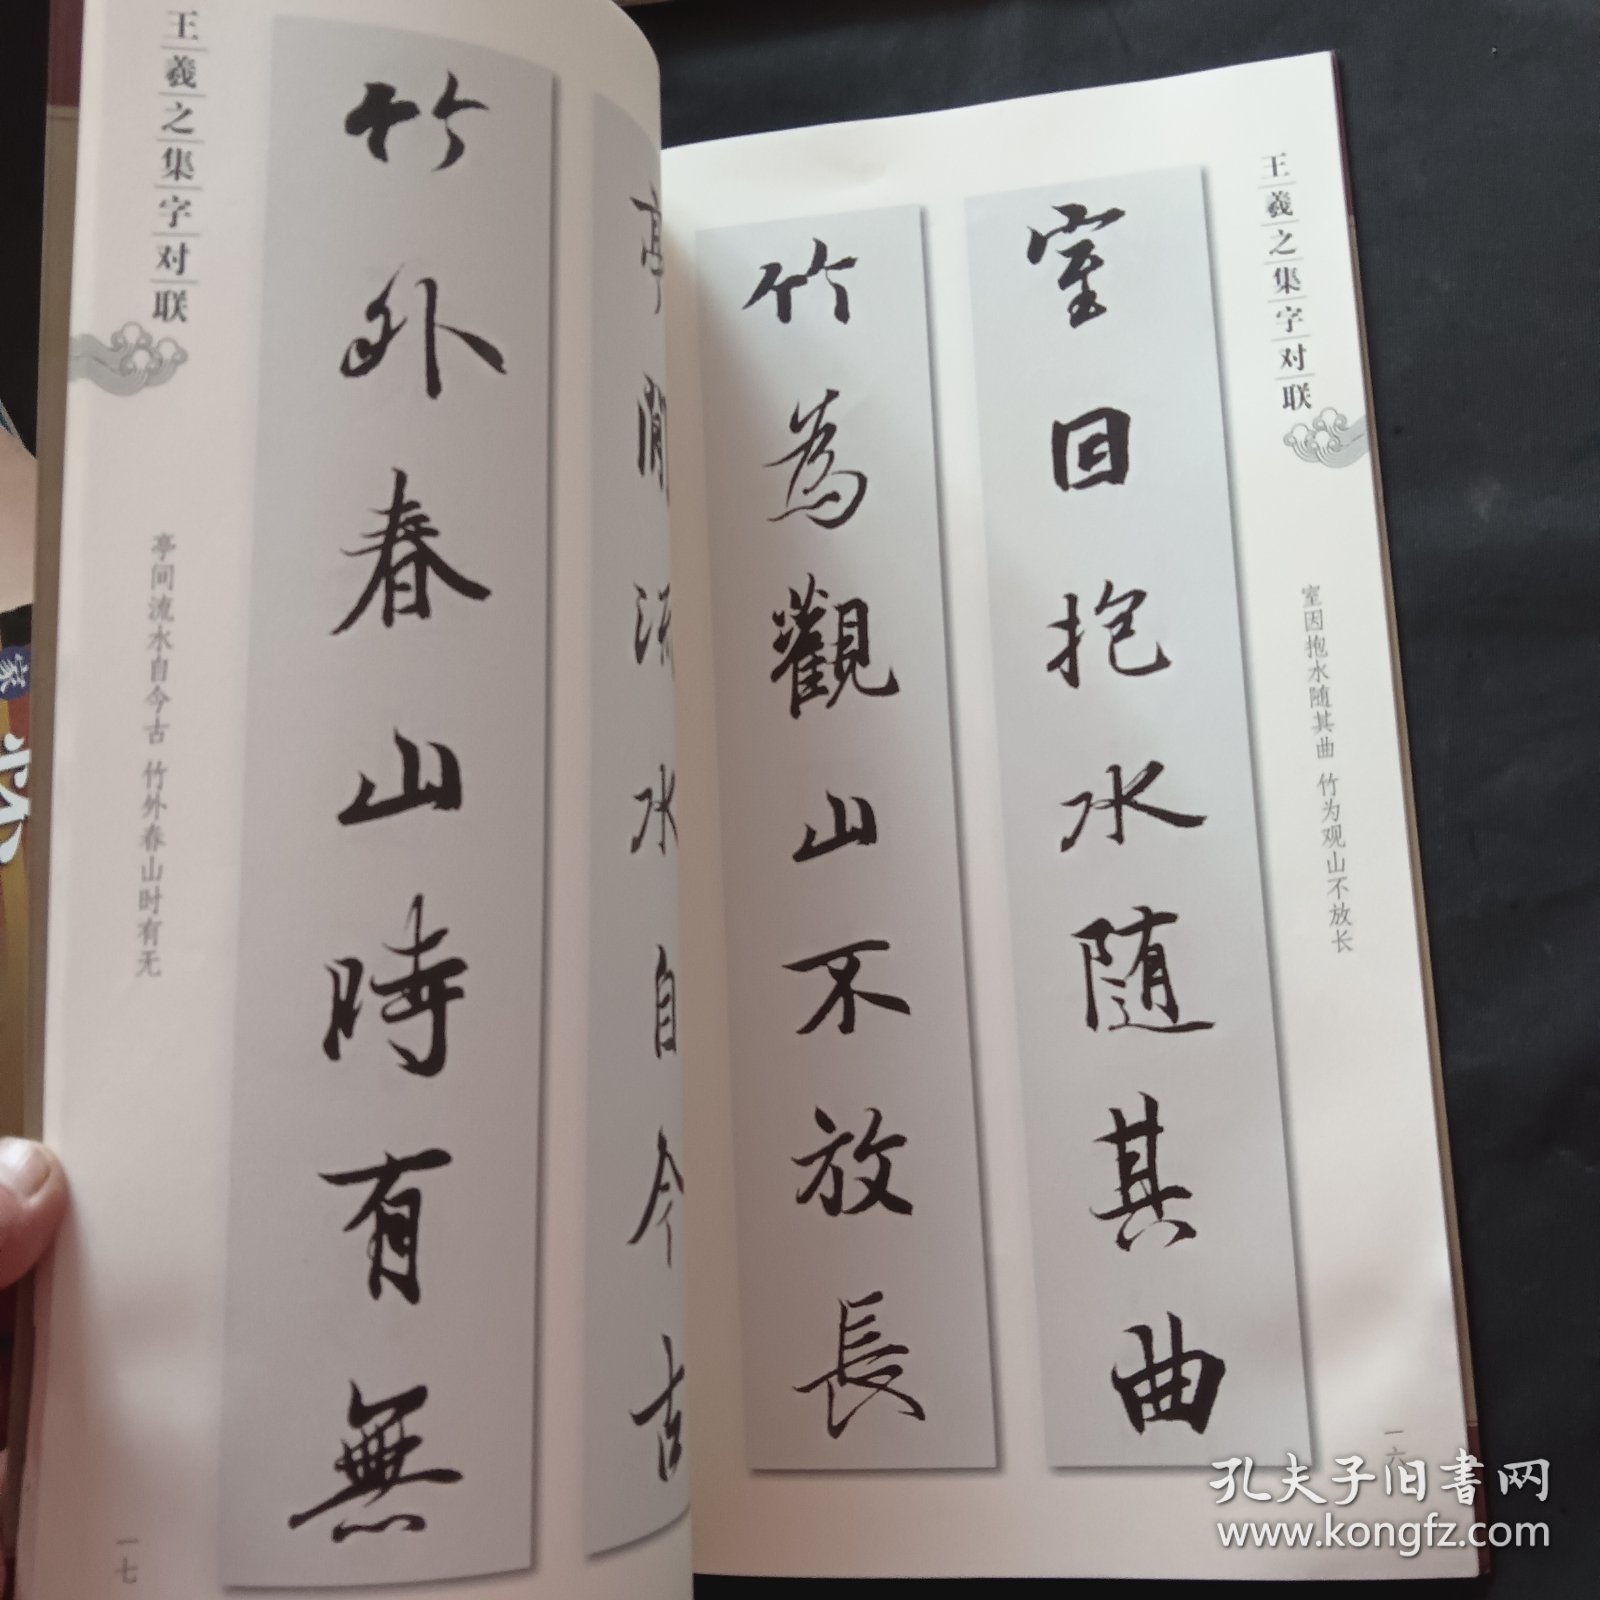 王羲之集字对联
室因抱水随其曲 竹为观山不放长
室因抱水隨其曲
竹為觀山不放長
一六
亭間流水自今古
竹外春山時有無
王羲之集字对联
亭间流水自今古 竹外春山时有无
一七
孔夫子旧書网
www.kongfz.com